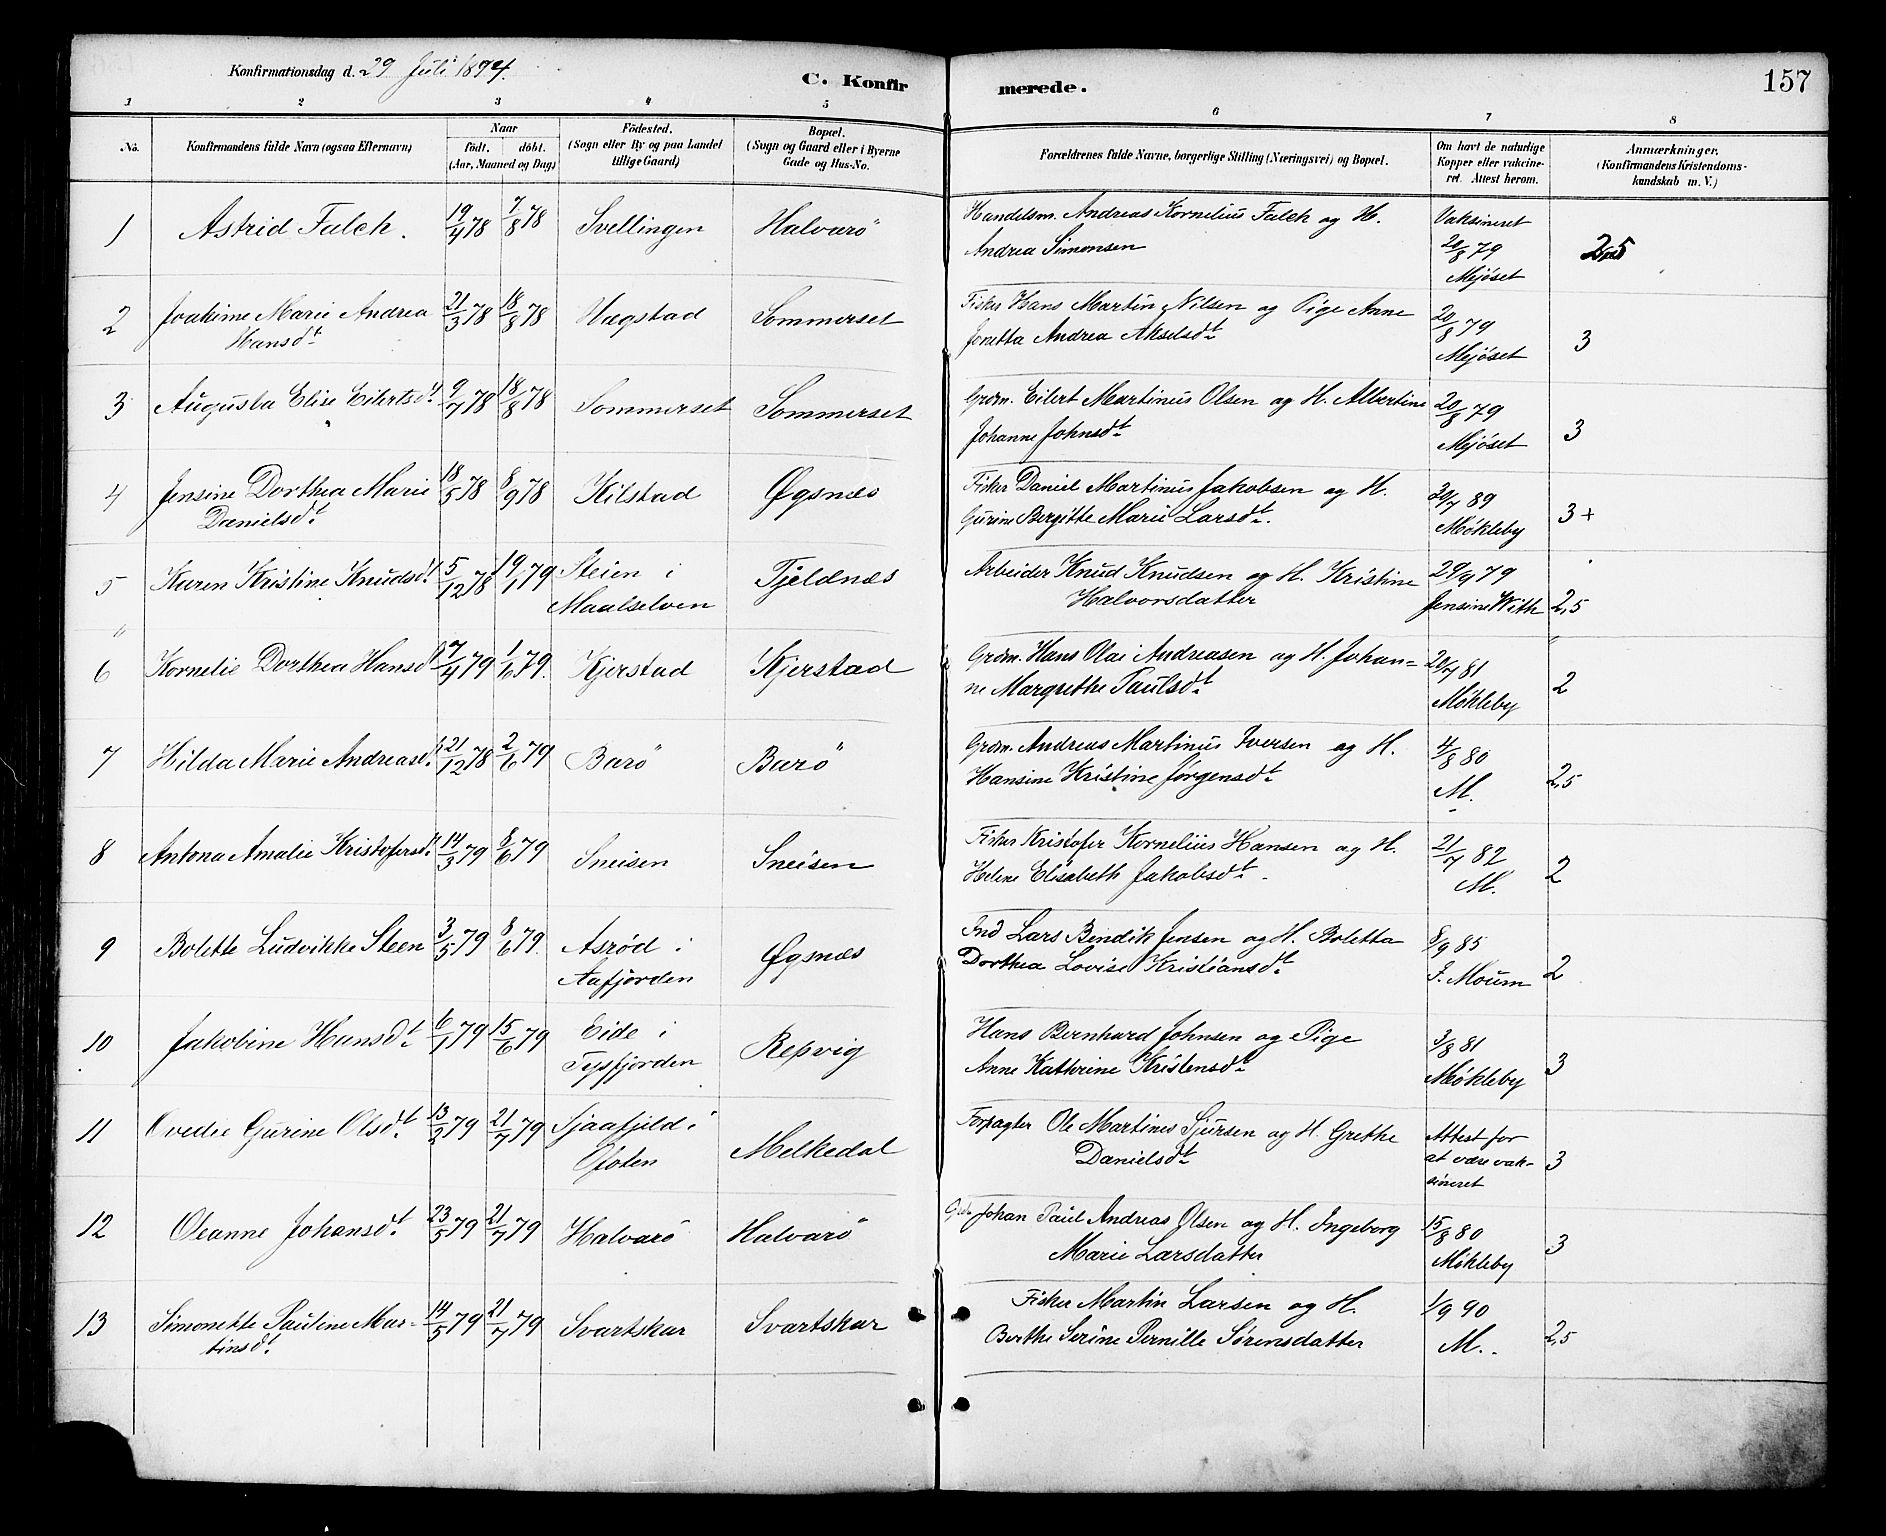 Konfirmationsdag d. 29 Juli 1894.
C. Konfirmerede.
157
1 2 3 4 5 6 7 8
No.
Konfirmandens fulde Navn (ogsaa Efternavn)
Naar
födt. döbt.
(Aar, Maaned og Dag)
Födested.
(Sogn eller By og paa Landet
tillige Gaard)
Bopæl.
(Sogn og Gaard eller i Byerne
Gade og Hus-No.
Forældrenes fulde Navne, borgerlige Stilling (Næringsvei) og Bopæl.
Om havt de naturlige
Kopper eller vakcine-
ret. Attest herom.
Anmærkninger.
(Konfirmandens Kristendoms-
kundskab m. V.)
1 Astrid Falch. 19/4 78 7/8 78 Svellingen Halvarö Handelsm. Andreas Kornelius Falch og H. Vaksineret
Andrea Simonsen 20/8 79 2,5
Mejöset
2 Joakime Marie Andrea 21/3 78 18/8 78 Hagstad Sommerset Fisker Hans Martin Nilsen og Pige Anne 20/8 79
Hansdt. Jonetta Andrea Akselsdt. Mejöset 3
3 Augusta Elise Eilertsdt. 9/7 78 18/8 78 Sommerset Sommerset Grdm. Eilert Martinus Olsen og H. Albertine 20/8 79
Johanne Johnsdt. Mejöset 3
4 Jensine Dorthea Marie 18/5 78 8/9 78 Kilstad Øgsnæs Fisker Daniel Martinus Jakobsen og H. 20/7 89
Danielsdt. Gurine Bergitte Marie Larsdt. Møkleby 3+
5 Karen Kristine Knudsdt. 5/12 78 19/1 79 Steien i Tjeldnæs Arbeider Knud Knudsen og H. Kristine 29/9 79
Maalselven Halvorsdatter Jensine With 2,5
6 Kornelie Dorthea Hansdt 7/4 79 1/6 79. Kjerstad Kjerstad Grdm. Hans Olai Andreasen og H. Johan- 20/7 81
ne Margrethe Paulsdt. Møkleby 2
7 Hilda Marie Andreasdt. 21/12 78 2/6 79 Barö Barö Grdm. Andreas Martinus Iversen og H. 4/8 80
Hansine Kristine Jørgensdt. M. 2,5
8 Antona Amalie Kristofersdt. 14/3 79 8/6 79 Sneisen Sneisen Fisker Kristofer Kornelius Hansen og H. 21/7 82
Helene Elisabeth Jakobsdt. M. 2
9 Bolette Ludvikke Steen 3/5 79 8/6 79. Asrød i Øgsnæs Ind Lars Bendik Jensen og H. Boletta 8/9 85
Aafjorden Dorthea Lovise Kristiansdt. J. Moum 2
10 Jakobine Hansdt. 6/1 79 15/6 79 Eide i Repvig Hans Bernhard Johnsen og Pige 3/8 81
Tysfjorden Anne Kathrine Kristensdt. Møkleby 3
11 Ovedie Gurine Olsdt. 13/2 79 21/7 79 Sjaafjeld i Melkedal Forpagter Ole Martines Sjursen og H. Grethe Attest for
Ofoten Danielsdt. at være vak-
sineret 3
12 Oleanne Johansdt. 23/5 79 21/7 79 Halvarö Halvarö Grdm Johan Paul Andreas Olsen og H. Ingeborg 15/8 80
Marie Larsdatter Møkleby 3
13 Simonette Pauline Mar- 14/5 79 21/7 79 Svartskar Svartskar Fisker Martin Larsen og H. 1/9 90
tinsdt. Berthe Serine Pernille Sørensdatter M. 2,5